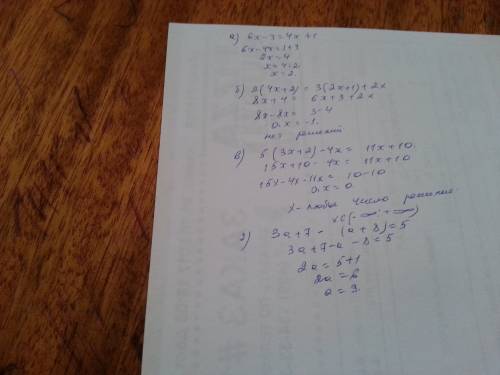 а) 6x-3=4x+1
6x-4x=1+3
2x=4
x=4:2
x=2.
б) 2(4x+2)=3(2x+1)+2x
8x+4=6x+3+2x
8x-8x=3-4
0.x=-1.
нет решений
в) 5(3x+2)-4x=11x+10.
15x+10-4x=11x+10
15x-4x-11x=10-10
0.x=0.
x-любое число решение.
xϵ(-∞;+∞)
г) 3a+7-(a+8)=5
3a+7-a-8=5
2a=5+1
2a=6
a=3.